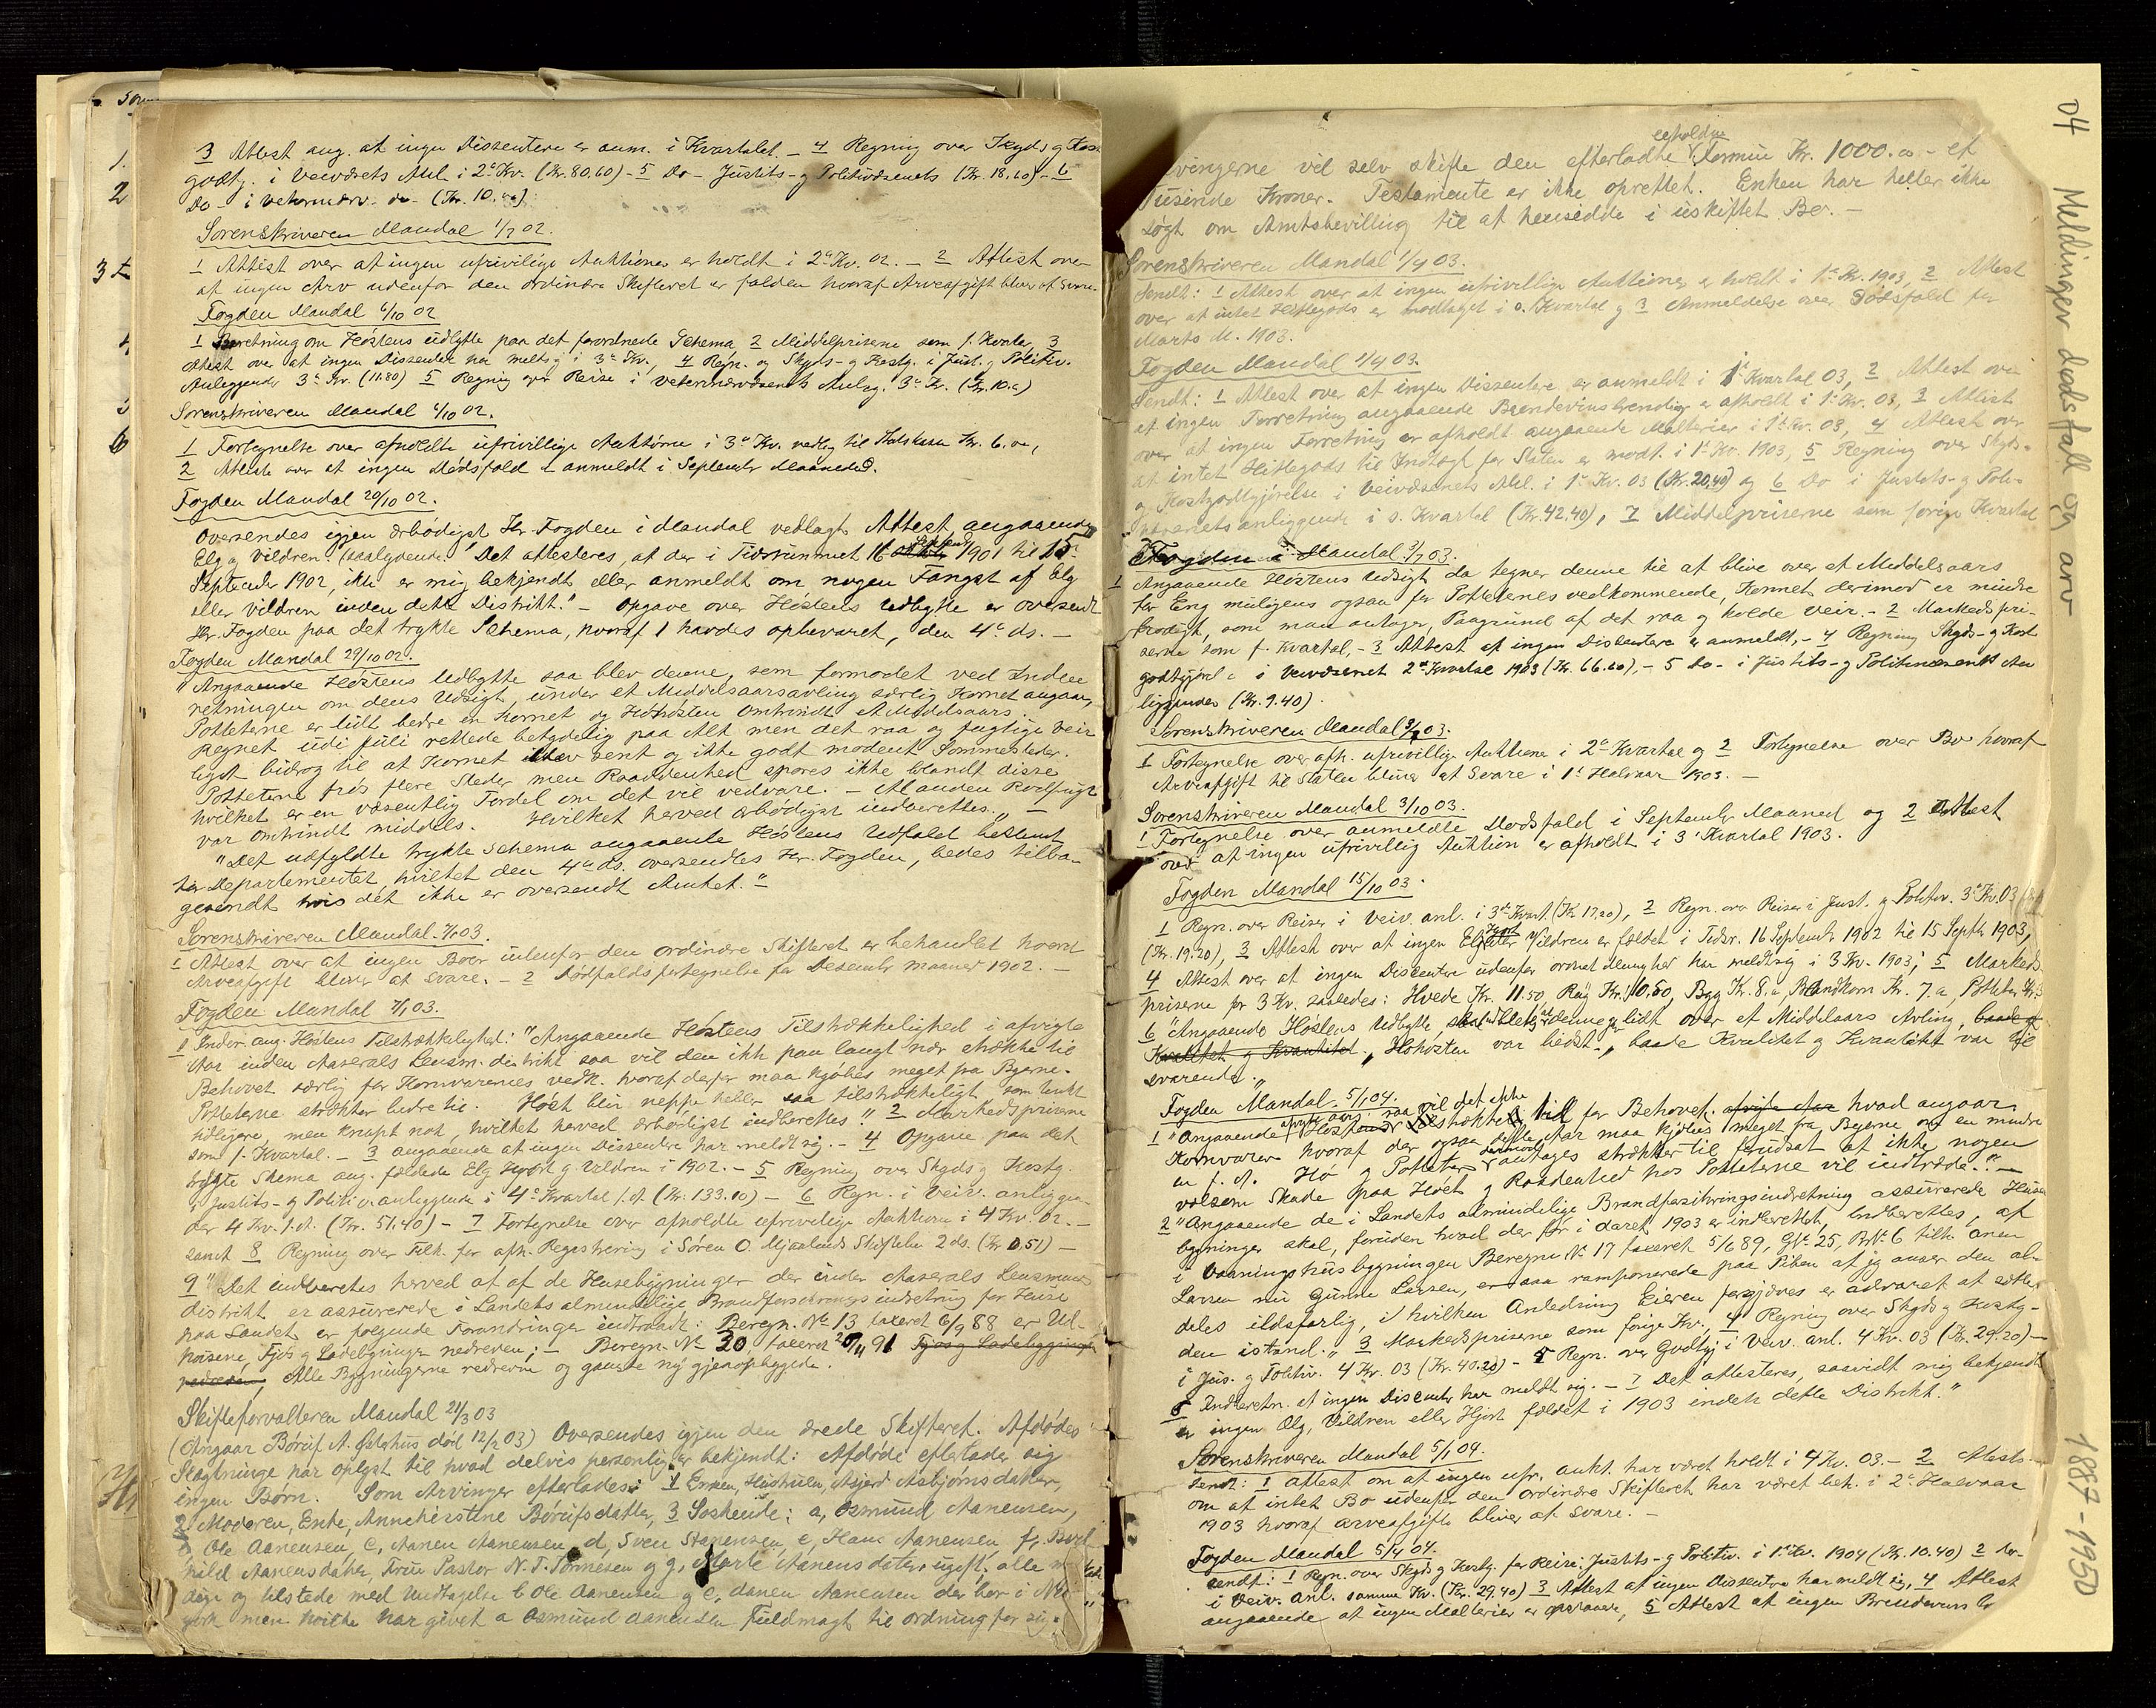 3 Attest ang. at ingen Dissentere er anm. i Kvartalet. – 4 Regning over Skyds g Kost
godtg. i Veivæsets Anl. i 2det Kv. (Kr. 80.60) – 5 Do – Justits- g Politivæsenets (Kr. 18.60) – 6
Do – i veterinærv. do – (Kr. 10.00)
Sorenskriveren Mandal 1/7 02.
1 Attest over at ingen ufrivilige Auktioner er holdt i 2det Kv. 02. – 2 Attest over
at ingen Arv udenfor den ordinære Skifteret er falden hvoraf Arveafgift bliver at svare.
Fogden Mandal 6/10 02
1 Beretning om Høstens udbytte paa det forordnede Schema 2 Middelpriserne som f. Kvartal, 3
Attest over at ingen Dissenter har meldt sig i 3de Kv, 4 Regn. og Skyds- g Kostg. i Just. g Politiv.
Anliggender 3de Kv. (11.80) 5 Regning over Reise i veterinærvæsenets Anlig. 3de Kv. (Kr. 10.00)
Sorenskriveren Mandal 6/10 02.
1 Fortegnelse over afholdte ufrivillige Auktioner i 3de Kv. vedlg til Kr. 6.00,
2 Attest over at ingen Dødsfald er anmeldt i September Maaned.
Fogden Mandal 20/10 02.
Oversendes igjen ærbødigst Hr. Fogden i Mandal vedlagt Attest angaaende
Elg g Vildren. (saalydende: "Det attesteres, at der i Tidsrummet 16 September 1901 til 15de
September 1902, ikke er mig bekjendt eller anmeldt om nogen Fangst af Elg
eller Vildren inden dette Distrikt." – Opgave over Høstens Udbytte er oversendt
Hr. Fogden paa det trykte Schema, hvoraf 1 havdes opbevaret, den 4de ds. –
Fogden Mandal 29/10 02.
"Angaaende Høstens Udbytte saa blev denne, som formodet ved Indbe
retningen om dens Udsigt, under et Middelsaarsavling særlig Kornet angaar,
Potteterne er lidt bedre en Kornet og Høhøsten omtrindt et Middelsaars.
Regnet udi Juli rettede betydelig paa Alt men det raa og fugtige Veir
ligst bidrog til at Kornet blev sent og ikke godt modent Sommesteder.
Potteterne frøs flere Steder men Raaddenhed spores ikke blandt disse
hvilket er en væsentlig Fordel om det vil vedvare. – Manden Rodfrugt
var omtrindt middels. Hvilket herved ærbødigst indberettes." –
"Det udfyldte trykte Schema angaaende Høstens Udfald bestemt
for Departementet hvilket den 4de ds. oversendtes Hr. Fogden, bedes tilba-
gesendt hvis dét ikke er oversendt Amtet."
Sorenskriveren Mandal 7/1 03.
1 Attest over at ingen Boer udenfor den ordinære Skifteret er behandlet hvoraf
Arveafgift bliver at svare. – 2 Dødsfaldsfortegnelse for Desember maaned 1902. –
Fogden Mandal 7/1 03.
1 Inder. ang. Høstens Tilstrækkelighed: "Angaaende Høstens Tilstrækkelighed i afvigte
Aar inden Aaserals Lensm. distrikt saa vil den ikke paa langt nær strække til
Behovet særlig for Kornvarenes vedk. hvoraf derfor maa kjøbes meget fra Byerne.
Potteterne strækker bedre til. Høet blir neppe heller saa tilstrækkeligt som tænkt
tidligere, men knapt nok, hvilket herved ærbødigst indberettes." 2 Markedspriserne
som f. Kvartal. – 3 angaaende at ingen Dissentere har meldt sig. – 4 Opgave paa det
trykte Skema ang. fældede Elg Hjort g Vildren i 1902. – 5 Regning over Skyds g Kostg.
i Justits- g Politiv. anliggende i 4de Kvartal f.A. (Kr. 133.10) – 6 Regn. i Veiv. anliggen
der 4 Kv. f.A. (Kr. 51.40) – 7 Fortegnelse over afholdte ufrivilige Auktioner i 4 Kv. 02. –
samt 8 Regning over Tilk. for afh. Registrering i Søren O. Mjaalands Skiftebo 2 ds. (Kr 0.51) –
9 "Det indberetes herved at af de Husebygninger der inden Aaserals Lensmans
distrikt er assurerede i Landets almindelige Brandforsikringsindretning for Huse
paa Landet er følgende Forandringer indtraadt: Beregn. No 13 taxeret 6/9 88 er Ud-
husene, Fjøs g Ladebygninger nedreven; – Beregn. No 30 taxeret 20/11 91 Fjøs g Ladebygninger
nedreven, Alle Bygningerne nedrevne og ganske ny gjenopbyggede.
Skifteforvalteren Mandal 21/3 03
(Angaar Børuf A. Østerhus død 12/2 03) Oversendes igjen den ærede Skifteret. Afdødes
Slægtninge har oplyst til hvad delvis personlig er bekjendt: Afdøde efterlader sig
ingen Børn. Som Arvinger efterlades: 1 Enken, Hustruen, Asjerd Asbjørnsdatter,
2 Moderen, Enke, Annekirstine Børufsdatter, 3 Søskende: a, Osmund Aanensen,
b Ole Aanensen, c, Aanen Aanensen, d, Sven Aanensen, e, Hans Aanensen, f, Bor
hild Aanensdatter, Frue Pastor N. T. Tønnesen g g, Marte Aanensdatter ugift. alle
dige og tilstede med Undtagelse b Ole Aanensen g c, Aanen Aanensen der bor i New
york men hvilke har givet a Osmund Aanensen Fuldmagt til ordning for sig.
Arvingerne vil selv skifte den efterladte Formue Kr. 1000.00 – et
Tusinde Kroner. Testamente er ikke oprettet. Enken har heller ikke
søgt om Amtsbevilling til at hensidde i uskiftet Bo. –
Sorenskriveren Mandal 1/4 03.
Sendt: 1 Attest over at ingen ufrivillige Auktioner er holdt i 1ste Kv. 1903, 2 Attest
over at intet Hittegods er modtaget i s. Kvartal g 3 Anmeldelse over Dødsfald for
Marts M. 1903.
Fogden Mandal 1/4 03.
Sendt: 1 Attest over at ingen Dissentere er anmeldt i 1ste Kvartal 03, 2 Attest over
at ingen Forretning angaaende Brændevinsbrænding er afholdt i 1ste Kv. 03, 3 Attest
over at ingen Forretning er afholdt angaaende Malterier i 1ste Kv. 03, 4 Attest over
at intet Hittegods til Indtægt for Staten er modt. i 1ste Kv. 1903, 5 Regning over Skyds-
g Kostgodtgjørelse i Veivæsenets Anl. i 1ste Kv. 03 (Kr. 20.40) og 6 Do i Justits- g Poli-
tivæsenets anliggende i s. Kvartal (Kr. 42.40), 7 Middelpriserne som forige Kvartal
Fogden i Mandal 3/7 03.
1 Angaaende Høstens Udsigt da tegner denne til at blive over et Middelsaars
for Eng muligens ogsaa for Potteternes vedkommende, Kornet derimod er mindre
frodigt, som man antager, Paagrund af det raa g kolde Veir. – 2 Markedspri-
serne som f. Kvartal, – 3 Attest at ingen Dissentere er anmeldt, – 4 Regning Skyds- g Kost
godtgjørel i Veivæsenet 2det Kvartal 1903 (Kr. 66.60), – 5 Do – i Justits- g Politivæsenets An
liggender (Kr. 9.40).
Sorenskriveren Mandal 3/7 03.
1 Fortegnelse over afh. ufrivillige Auktioner i 2det Kvartal og 2 Fortegnelse over Bo hvoraf
Arveafgift til Staten bliver at svare i 1ste Halvaar 1903. –
Sorenskriveren Mandal 3/10 03.
1 Fortegnelse over anmeldte Dødsfald i September Maaned og 2 Attest
over at ingen ufrivillig Auktion er afholdt i 3de Kvartal 1903.
Fogden Mandal 15/10 03.
1 Regn. over Reiser i Veiv. anl. i 3de Kvart (Kr. 17.20), 2 Regn. over Reiser i Just. g Politiv. 3de Kv. 03
(Kr. 19.20), 3 Attest over at ingen Elg Hjort eller Vildren er fældet i Tidsr. 16 September 1902 til 15 Septbr 1903,
4 Attest over at ingen Dissentere udenfor ordnet Menighed har meldt sig i 3 Kv. 1903; 5 Markeds-
priserne for 3 Kv. saaledes: Hvede Kr. 11.50, Rug Kr. 10.50, Byg Kr. 8.00, Blandkorn Kr. 7.00, Potteter Kr. 3
6 "Angaaende Høstens Udbytte, denne lidt over et Middelaars Avling, baade
Kvalitet g Kvantitet, Høhøsten var bedst, baade Kvalitet g Kvantitet var til
svarende."
Fogden Mandal 5/1 04.
1 "Angaaende afvigte aars Høst saa vil det ikke strække til for Behovet. afvigte Aar hvad angaar
Kornvarer hvoraf der ogsaa dette Aar maa kjøbes meget fra Byerne om en mindre
en f. A. Hø g Potteter derimod antages strækker til forudsat at ikke nogen
voldsom Skade paa Høet g Raadenhed hos Potteterne vil indtræde." –
2 "Angaaende de i Landets almindelige Brandforsikringsindretning assurerede Huse
bygninger skal, foruden hvad der før i Aaret 1903 er indberettet, indberettes, af
i Vaaningshusbygningen Beregni No 17 taxeret 5/6 89, GNo 25, BNo 6 tilh.
Larsen nu Gunne Larsen, er saa ramponerede paa Piben at jeg anser den al-
deles ildsfarlig, i hvilken Anledning Eieren forgjæves er advaret at sætte
den istand." 3 Markedspriserne som forige Kv., 4 Regning over Skyds g Kostg-
i Jus. g Politiv. 4 Kv. 03 (Kr. 40.20) – 5 Regn. over Godtgj i Veiv. anl. 4 Kv. 03 (Kr. 29.20) –
6 Indberetn. at ingen Disenter har meldt sig. – 7 Det attesteres, saavidt mig bekjendt
er ingen Elg, Vildren eller Hjort fældet i 1903 inden dette Distrikt."
Sorenskriveren Mandal 5/1 04.
Sendt: 1 Attest om at ingen ufr. aukt. har været holdt i 4 Kv. 03. – 2 Attest
om at intet Bo udenfor den ordinære Skifteret har været beh. i 2det Halvaar
1903 hvoraf arveafgift bliver at svare. –
Fogden Mandal 5/4 04.
sendt: 1 Regn. over Skyds g Kostg. for Reise: Justits- g Politiv. i 1ste Kv. 1904 (Kr. 10.40) 2 Do-
i Veiv. anl. samme Kv. (Kr. 29.40) 3 Attest at ingen Dissentere har meldt sig, 4 Attest
angaaende at ingen Malterier er 5 Attest at ingen
04 Meldinger dødsfall og arv 1887-1950